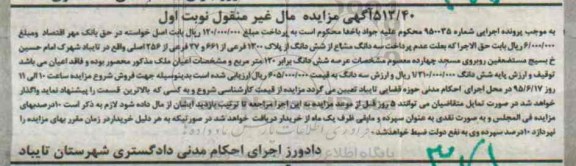 ۵۱۳/۴۰ آگهی مزایده مال غیر منقول نوبت اول
به موجب پرونده اجرایی شماره ۹۵۰۰۳۵ محکوم علیه جواد باخدا محکوم است به پرداخت مبلغ ۱۲۰/۰۰۰/۰۰۰ ریال بابت اصل خواسته در حق بانک مهر اقتصاد ومبلغ
۶/۰۰۰/۰۰۰ ریال بابت حق الاجرا که بعلت عدم پرداخت سه دانگ مشاع از شش دانگ از پلاک ۱۲۰۰ فرعی از ۶۶۱ و ۲۷ فرعی از ۲۵۶ اصلی واقع در تایباد شهرک امام حسین
خ بسیج مستضعفین روبروی مسجد چهارده معصوم مشخصات عرصه شش دانگ برابر ۱۲۰ متر مربع و مشخصات اعیان ملک مذکور محصور بوده و فاقد اعیان می باشد
توقیف و ارزش پایه شش دانگ ریال و ارزش سه دانگ به قیمت ۶۰۵/۰۰۰/۰۰۰ ریال ارزیابی شده است بدینوسیله جهت فروش شروع مزایده ساعت ۱۰ الی ۱۱
روز ۹۵/۶/۱۷ در محل اجرای احکام مدنی حوزه قضایی تایباد تعیین می گردد مزایده از قیمت کارشناسی شروع و به کسی که بالاترین قسمت را پیشنهاد نماید واگذار
خواهد شد در صورت تمایل متقاضیان می توانند ۵ روز قبل از جلسه مزایده به این اجرا مراجعه تا ترتیب بازدید ایشان از مال داده شود لازم به ذکر است ۱۰درصدبهای
مزایده فی المجلس و به صورت نقدی به عنوان سپرده و مابقی ظرف یک ماه از خریدار دریافت خواهد شد در صورتیکه به هر دلیل خریداردر زمان مقرر بهای مزایده را
نپردازد ۱۰درصد سپرده وی به نفع دولت ضبط خواهدشد.
دادورز اجرای احکام مدنی دادگستری شهرستان تایباد